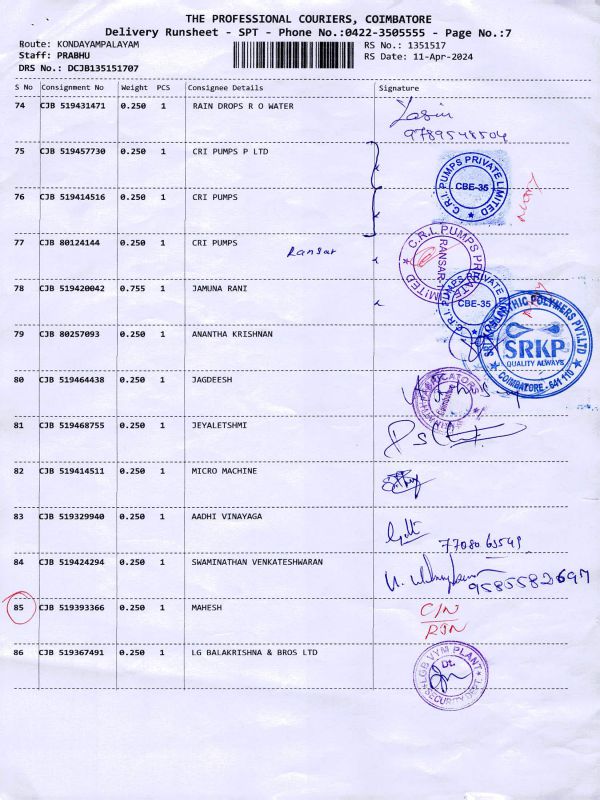 THE PROFESSIONAL COURIERS, COIMBATORE
Delivery Runsheet - SPT - Phone No.:0422-3505555 - Page No.:7
Route: KONDAYAMPALAYAM RS No.: 1351517
Staff: PRABHU RS Date: 11-Apr-2024
DRS No.: DCJB135151707
S No Consignment No Weight PCS Consignee Details Signature
74 CJB 519431471 0.250 1 RAIN DROPS R O WATER
9789548504
75 CJB 519457730 0.250 1 CRI PUMPS P LTD
C.R.I. PUMPS PRIVATE LIMITED
CBE-35
76 CJB 519414516 0.250 1 CRI PUMPS
77 CJB 80124144 0.250 1 CRI PUMPS
Ransar
C.R.I. PUMPS PRIVATE LIMITED
RANSAR
78 CJB 519420042 0.755 1 JAMUNA RANI
CBE-35
79 CJB 80257093 0.250 1 ANANTHA KRISHNAN
POLYMERS PVT.LTD
SRKP
QUALITY ALWAYS
COIMBATORE - 641 110
80 CJB 519464438 0.250 1 JAGDEESH
81 CJB 519468755 0.250 1 JEYALETSHMI
82 CJB 519414511 0.250 1 MICRO MACHINE
83 CJB 519329940 0.250 1 AADHI VINAYAGA
77080 63549
84 CJB 519424294 0.250 1 SWAMINATHAN VENKATESHWARAN
9585582697
85 CJB 519393366 0.250 1 MAHESH
C/N
RTN
86 CJB 519367491 0.250 1 LG BALAKRISHNA & BROS LTD
LGB VYM PLANT
Dt.
SECURITY DEPT.